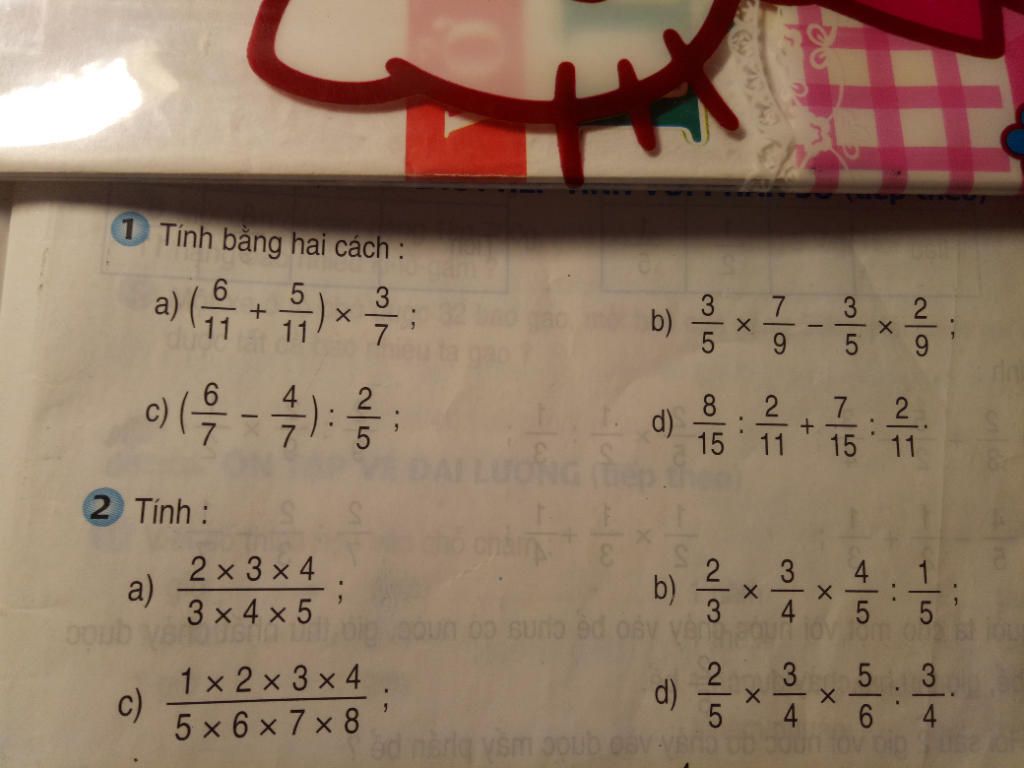 (tiếp theo)
1 Tính bằng hai cách :
a) (6/11 + 5/11) × 3/7 ;
b) 3/5 × 7/9 − 3/5 × 2/9 ;
c) (6/7 − 4/7) : 2/5 ;
d) 8/15 : 2/11 + 7/15 : 2/11.
2 Tính :
a) (2 × 3 × 4)/(3 × 4 × 5) ;
b) 2/3 × 3/4 × 4/5 : 1/5 ;
c) (1 × 2 × 3 × 4)/(5 × 6 × 7 × 8) ;
d) 2/5 × 3/4 × 5/6 : 3/4.